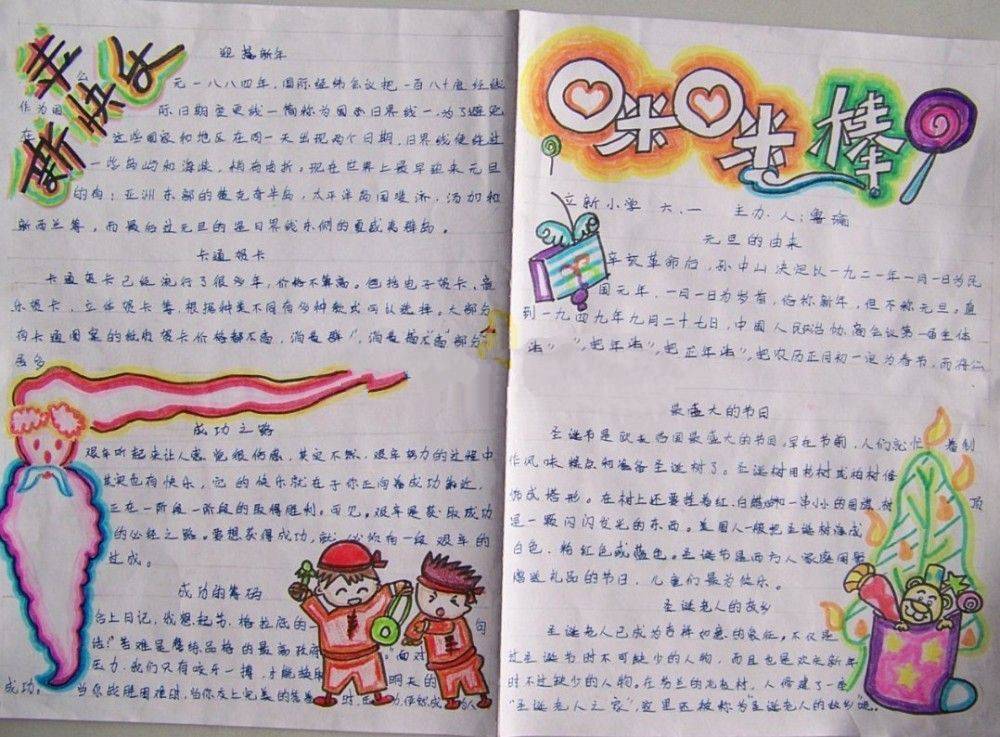 新年快乐
迎接新年
元一八八四年，国际经纬会议把一百八十度经线
作为国际日期变更线一简称为国际日界线一，为了避免
在这些国家和地区在同一天出现两个日期，日界线便经过
一些岛屿和海峡，稍有曲折。现在世界上最早迎来元旦
的有：亚洲东部的楚克奇半岛，太平洋岛国斐济，汤加和
新西兰等，而最后过元旦的是日界线东侧的夏威夷群岛。
卡通贺卡
卡通贺卡已经流行了很多年，价格不算高。包括电子贺卡、音
乐贺卡、立体贺卡等，根据种类不同有多种款式可以选择。大部分
有卡通图案的纸质贺卡价格都不高，消费群
居多
成功之路
艰辛听起来让人感觉很伤感，其实不然，艰辛努力的过程中
其实也有快乐，它的快乐就在于你正向着成功靠近，
正在一阶段一阶段的取得胜利。可见，艰辛是获取成功
的必经之路。要想获得成功，就必须有一段艰辛的
过成。
成功的筹码
合上日记，我想起苏格拉底的一句
话："苦难是磨练品格的最高政府
压力，我们只有咬牙一搏，才能换取明天的
成功。当你战胜困难时，当你交上完美的答卷时，
咪咪棒
立新小学 六.一 主办人：鲁瑞
元旦的由来
辛亥革命后，孙中山决定以一九二一年一月一日为民
国元年，一月一日为岁首，俗称新年，但不称元旦。直
到一九四九年九月二十七日，中国人民政治协商会议第一届全体
，把农历正月初一定为春节，而将
最盛大的节日
圣诞节是欧美各国最盛大的节日，早在节前，人们就忙着制
作风味糕点和准备圣诞树了。圣诞树用杉树或柏树修
饰成塔形。在树上还要挂着红、白蜡烛和一串小的国旗，树顶
是一颗闪闪发光的东西。美国人一般把圣诞树漆成
白色、粉红色或蓝色。圣诞节是西方人家庭团聚
赠送礼品的节日，儿童们最为快乐。
圣诞老人的故乡
圣诞老人已成为吉祥如意的象征。不仅是
过圣诞节时不可缺少的人物，而且也是欢庆新年
时不过缺少的人物。在芬兰的
"圣诞老人之家"，这里还被称为圣诞老人的故乡呢。